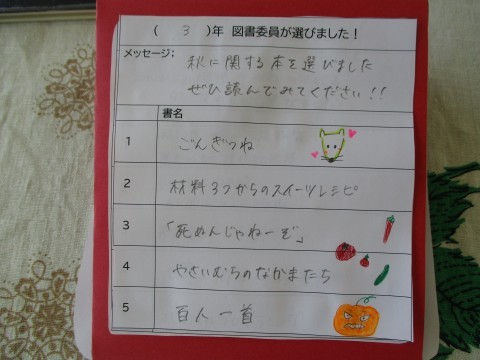 ( 3 )年 図書委員が選びました！
メッセージ; 秋に関する本を選びました
ぜひ読んでみてください!!
書名
1 ごんぎつね
2 材料3つからのスイーツレシピ
3 「死ぬんじゃねーぞ」
4 やさいむらのなかまたち
5 百人一首